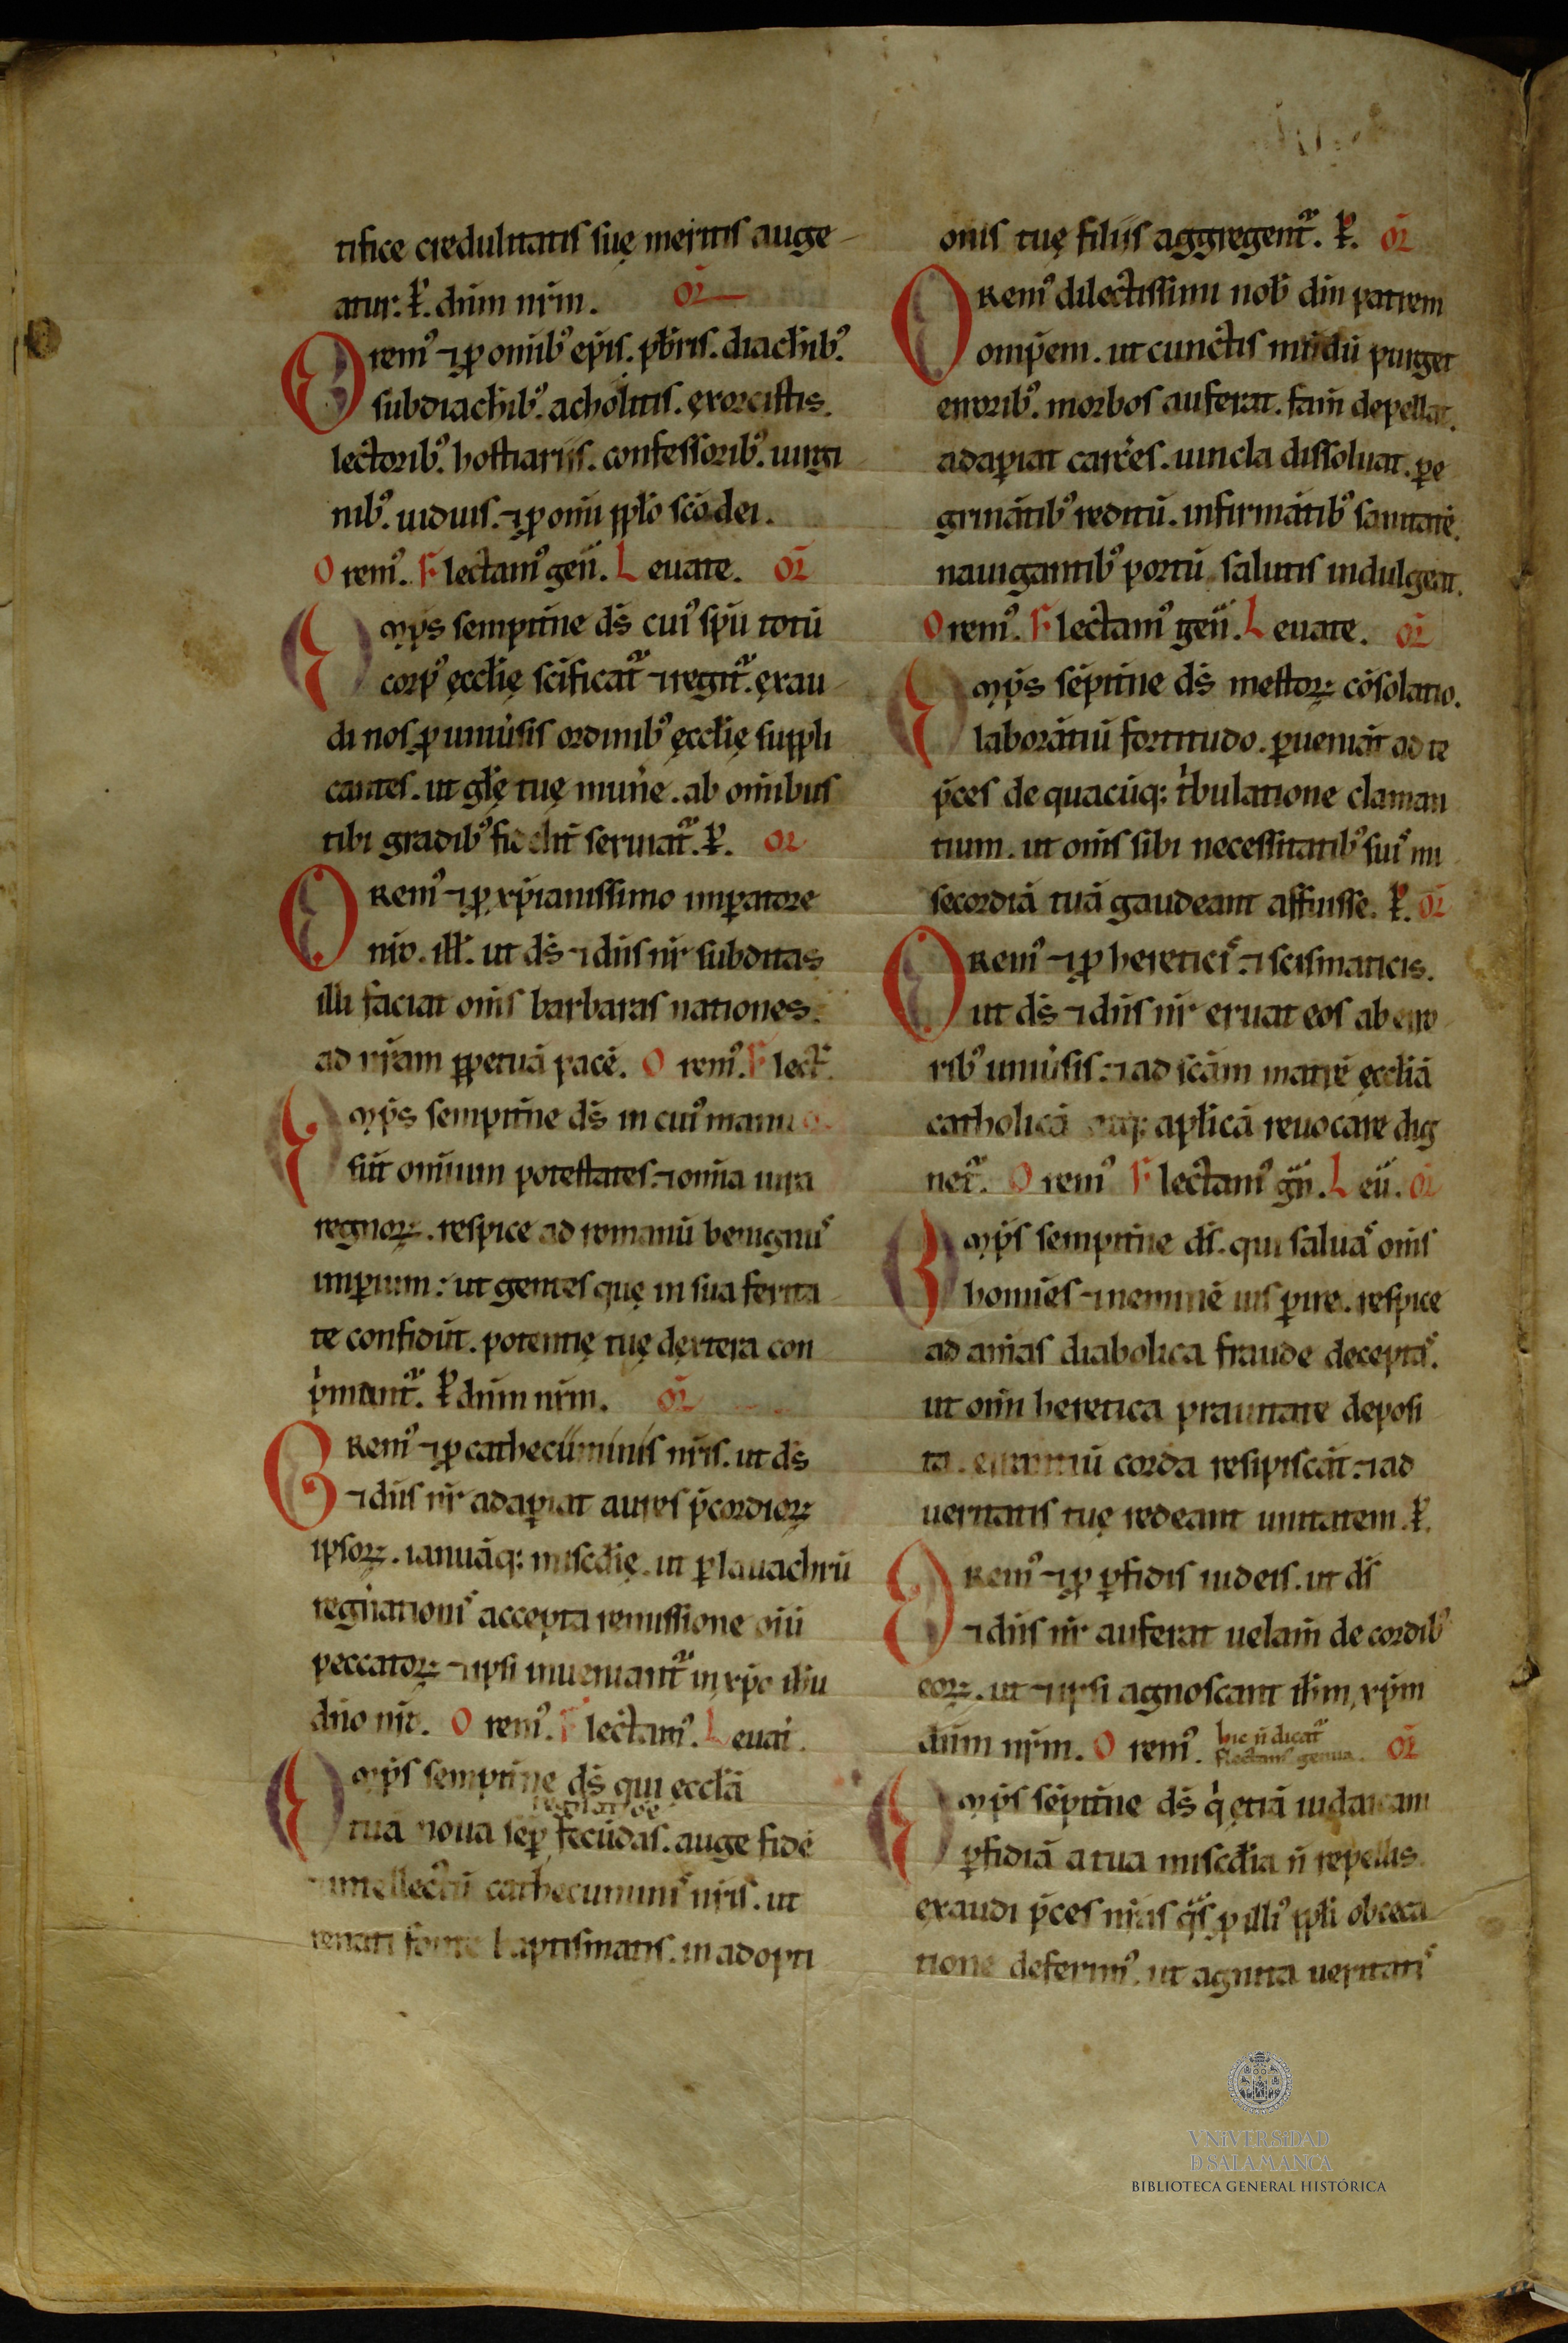 tifice credulitatis suę meritis auge
atur. ꝑ. dn̄m nr̄m. or̄
Oremꝰ ⁊ ꝓ om̄ibꝰ ep̄is. pb̄ris. diachībꝰ.
subdiachībꝰ. acholitis. ęxorcistis.
lectoribꝰ. hostiariis. confessoribꝰ. uirgi
nibꝰ. uiduis. ⁊ ꝓ om̄i pplō sc̄o dei.
Oremꝰ. Flectamꝰ gen̄. Leuate. or̄
Om̄ps sempit̄ne ds̄ cuiꝰ sp̄u totū
corpꝰ ęccl̄ię sc̄ificat᷑ ⁊ regit᷑. ęxau
di nos ꝓ uniūsis ordinibꝰ ęccl̄ię suppli
cantes. ut gl̄ę tuę mun̄e. ab om̄ibus
tibi gradibꝰ fidelit̄ seruiat᷑. ꝑ. or
ORemꝰ ⁊ ꝓ xp̄ianissimo imꝑatore
nr̄o. ill̄. ut ds̄ ⁊ dn̄s nr̄ subditas
illi faciat om̄s barbaras nationes.
ad nr̄am ꝑpetuā pacē. Oremꝰ. Flect̄.
Om̄ps sempit̄ne ds̄ in cuiꝰ manu
sūt omnium potestates. ⁊ om̄ia iura
regnoꝝ. respice ad romanū benignuˢ
imꝑium: ut gentes quę in sua ferita
te confidūt. potentię tuę dęxtera con
p̄mant᷑. ꝑ dn̄m nr̄m. or̄
ORemꝰ ⁊ ꝓ cathecūminis nr̄is. ut ds̄
⁊ dn̄s nr̄ adaꝑiat aures p̄cordioꝝ
ipsoꝝ. ianuāq; misc̄dię. ut ꝑ lauachrū
regn̄ationiˢ accepta remissione oīū
peccatoꝝ ⁊ ipsi inueniant᷑ in xp̄o ih̄u
dn̄o nr̄o. Oremꝰ. Flectamꝰ. Leuat̄.
Om̄ps sempit̄ne ds̄ qui ęccl̄ā
tuā noua sep̄ fecūdas. auge fidē
⁊ intellectū cathecuminiˢ nr̄is. ut
renati fonte baptismatis. in adopti
onis tuę filiis aggregent᷑. ꝑ. or̄
ORemꝰ dilectissimi nob̄ dm̄ patrem
om̄p̄em. ut cunctis mūdū purget
erroribꝰ. morbos auferat. fam̄ depellat.
adaꝑiat carc̄es. uincla dissoluat. ꝑe
grināt̄ibꝰ reditū. infirmāt̄ibꝰ sanitatē.
nauigantibꝰ portū salutis indulgeat.
Oremꝰ. Flectamꝰ gen̄. Leuate. or̄
Om̄ps sēpit̄ne ds̄ mestoꝝ cōsolatio.
laborātiū fortitudo. ꝑueniāt ad te
p̄ces de quacūq; t̄bulatione claman
tium. ut om̄s sibi necessitatibꝰ suiˢ mi
secordiā tuā gaudeant affuisse. ꝑ. or̄
ORemꝰ ⁊ ꝓ hereticiˢ ⁊ scismaticis.
ut ds̄ ⁊ dn̄s nr̄ eruat eos ab erro
ribꝰ uniūsis. ⁊ ad sc̄am matrē ęccl̄iā
catholicā atq; apl̄icā reuocare dig
net᷑. Oremꝰ Flectamꝰ gn̄. Leū. or̄
Om̄ps sempit̄ne ds̄. qui saluaˢ om̄s
homīes ⁊ neminē uis ꝑire. respice
ad an̄ias diabolica fraude deceptaˢ.
ut om̄i heretica prauitate deposi
ta. errantiū corda resipiscāt. ⁊ ad
ueritatis tuę redeant unitatem. ꝑ.
ORemꝰ ⁊ ꝓ ꝑfidis iudeis. ut ds̄
⁊ dn̄s nr̄ auferat uelam̄ de cordibꝰ
eoꝝ. ut ⁊ ipsi agnoscant ih̄m xp̄m
dn̄m nr̄m. Oremꝰ. hic n̄ dicat᷑ flectamˢ genua. or̄
Om̄ps sēpit̄ne ds̄ q̄ ętiā iudaicam
ꝑfidiā a tua misc̄dia n̄ repellis.
exaudi p̄ces nr̄as qˢ ꝓ illiꝰ ppl̄i obceca
tione deferimꝰ. ut agnita ueritatiˢ
VNiVERSiDAD
D SALAMANCA
BIBLIOTECA GENERAL HISTÓRICA